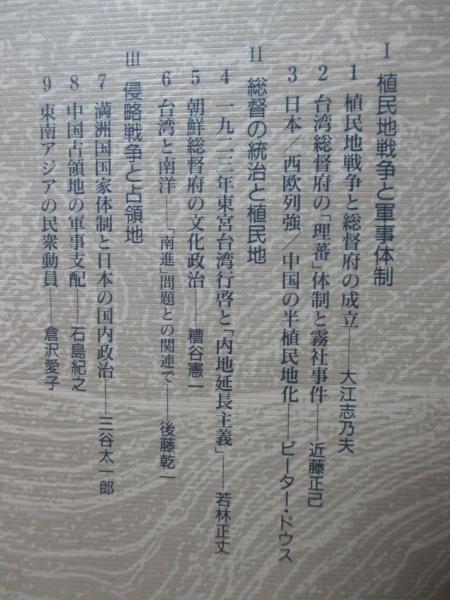 I 植民地戦争と軍事体制
1 植民地戦争と総督府の成立——大江志乃夫
2 台湾総督府の「理蕃」体制と霧社事件——近藤正己
3 日本/西欧列強/中国の半植民地化——ピーター・ドウス
II 総督の統治と植民地
4 一九二三年東宮台湾行啓と「内地延長主義」——若林正丈
5 朝鮮総督府の文化政治——糟谷憲一
6 台湾と南洋——「南進」問題との関連で——後藤乾一
III 侵略戦争と占領地
7 満洲国国家体制と日本の国内政治——三谷太一郎
8 中国占領地の軍事支配——石島紀之
9 東南アジアの民衆動員——倉沢愛子